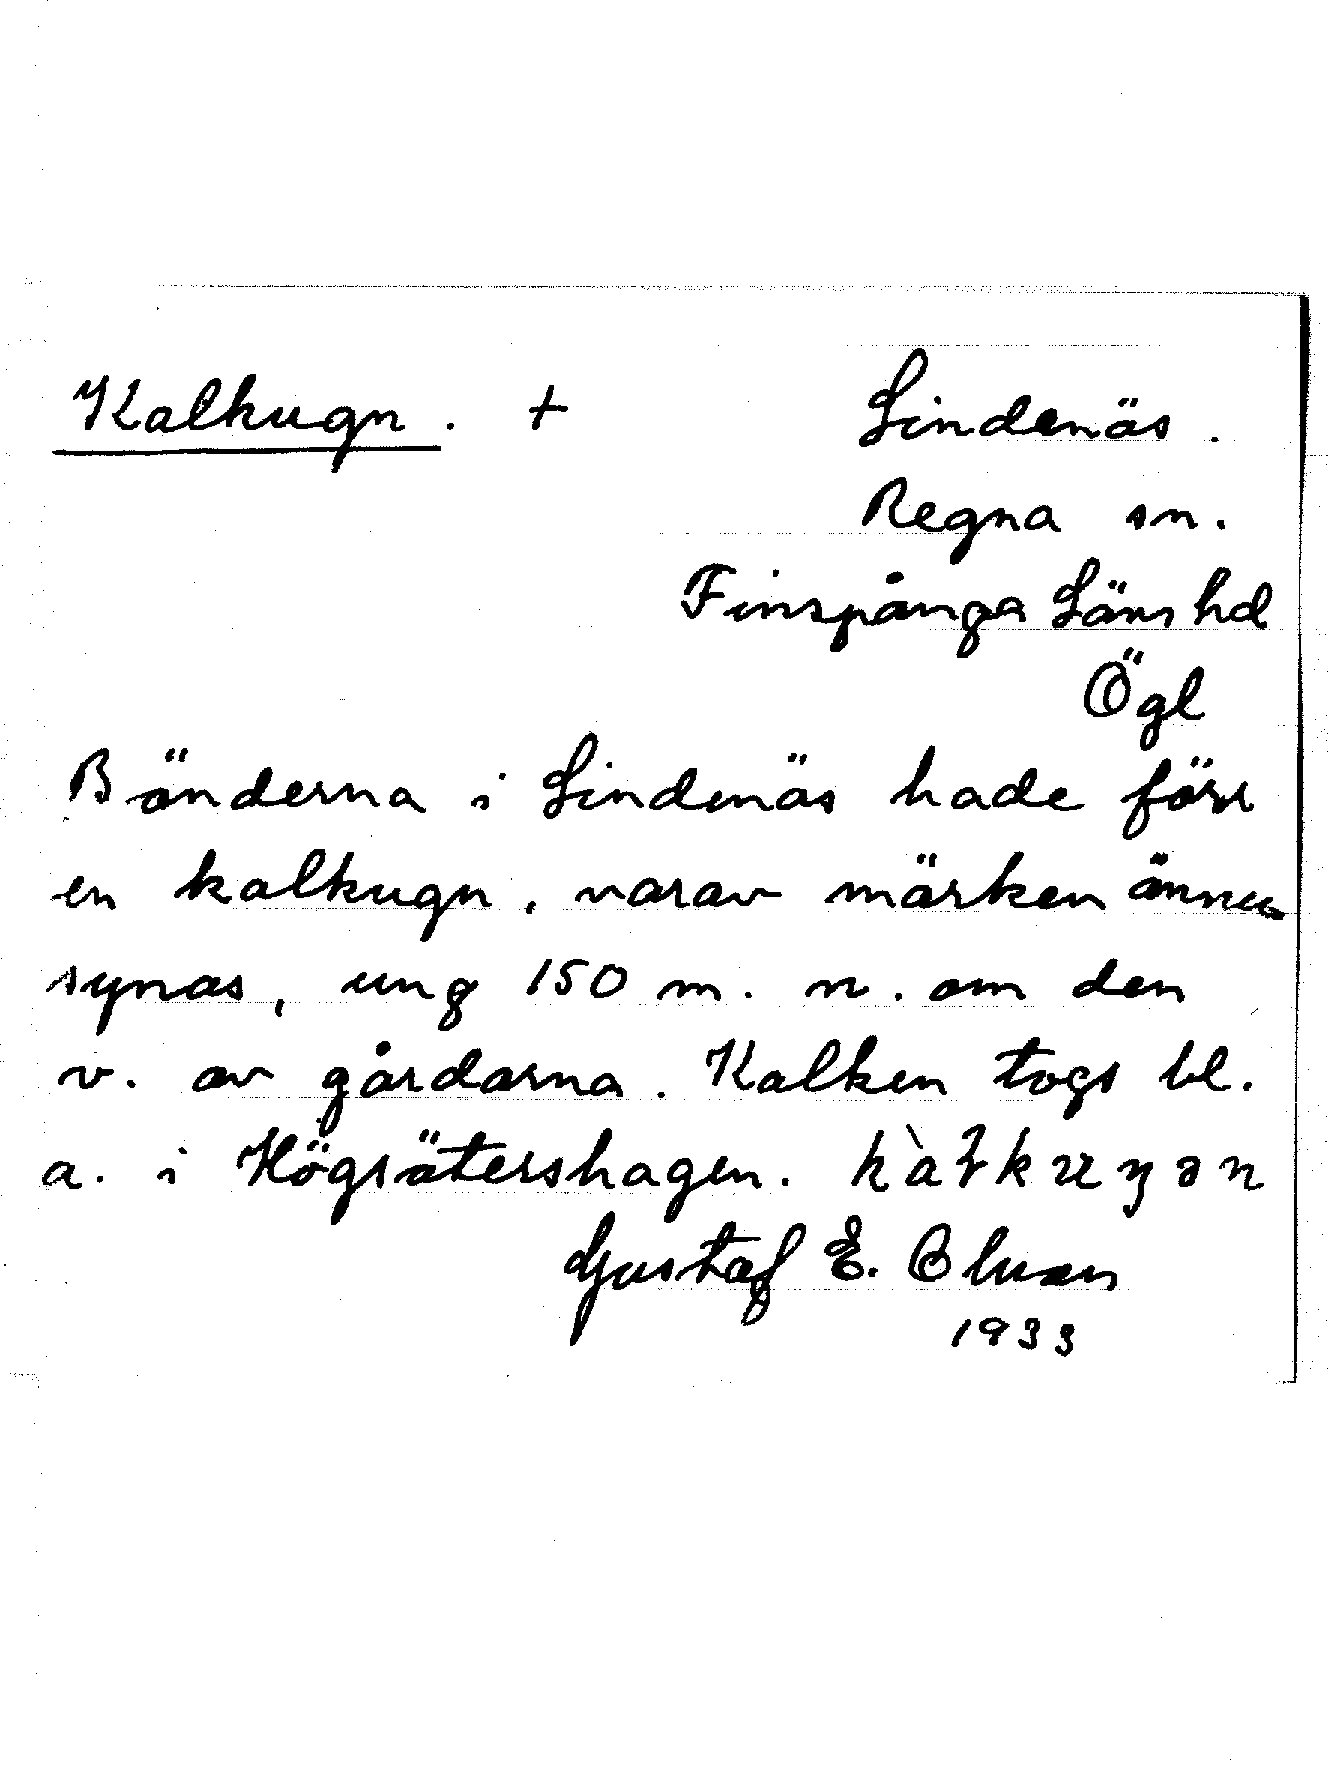 Kalkugn. + Lindenäs.
Regna sn.
Finspånga Läns hd
Ögl
Bönderna i Lindenäs hade förr
en kalkugn, varav märken ännu
synas, ung 150 m. n. om den
v. av gårdarna. Kalken togs bl.
a. i Högsätershagen.
Gustaf E. Olsson
1933